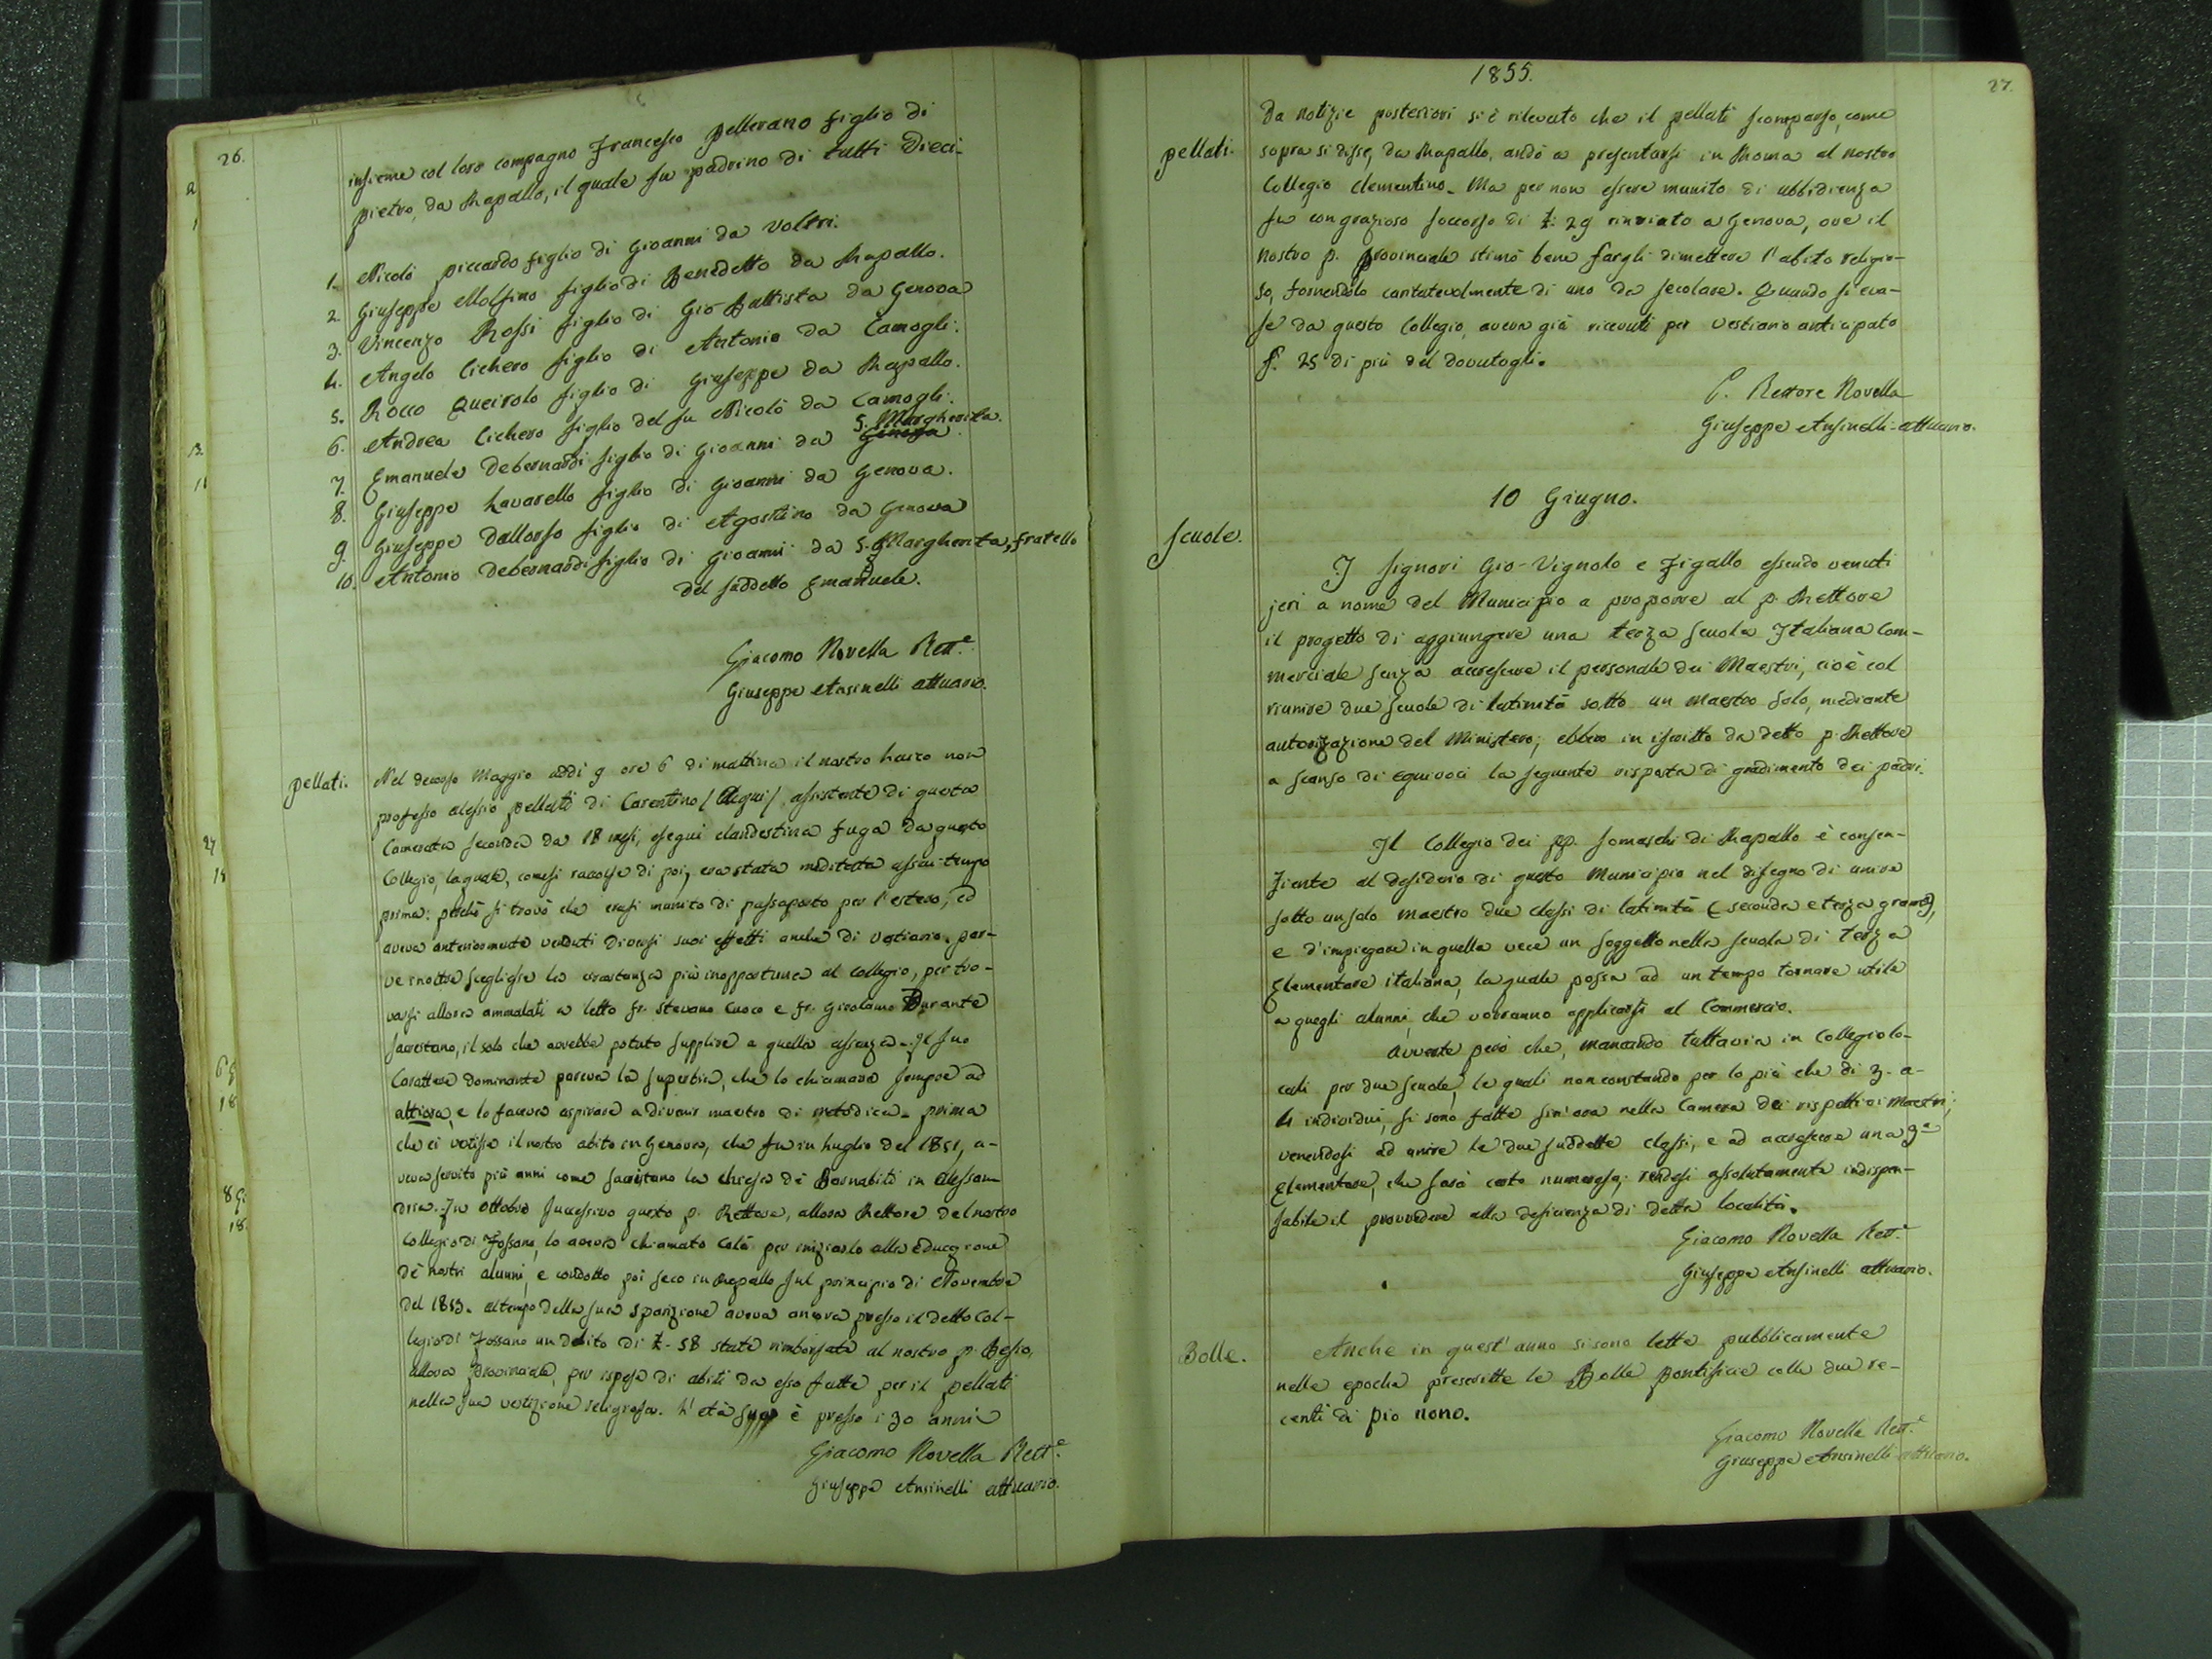 26.
insieme col loro compagno Francesco Pellerano figlio di
pietro, da Rapallo, il quale fu padrino di tutti dieci.
1. Nicolò piccardo figlio di Gioanni da Voltri.
2. Giuseppe Molfino figlio di Benedetto da Rapallo.
3. Vincenzo Rossi figlio di Gio Battista da Genova
4. Angelo Cichero figlio di Antonio da Camogli.
5. Rocco Queirolo figlio di Giuseppe da Rapallo.
6. Andrea Cichero figlio del fu Nicolò da Camogli.
S. Margherita.
7. Emanuele Debernardi figlio di Gioanni da Genova.
8. Giuseppe Lavarello figlio di Gioanni da Genova.
9. Giuseppe Dallorso figlio di Agostino da Genova
10. Antonio Debernardi figlio di Gioanni da S. Margherita, fratello
del suddetto Emanuele.
Giacomo Novella Rett.e
Giuseppe Ansinelli attuario.
pellati.
Nel decorso Maggio addì 9 ore 6 di mattina il nostro laico non
professo alessio pellati di Carentino (Acqui) assistente di questa
Camerata seconda da 18 mesi, eseguì clandestina fuga da questo
Collegio, la quale, come si raccolse di poi, era stata meditata assai tempo
prima: perchè si trovò che erasi munito di passaporto per l'estero, ed
aveva anteriormente venduti diversi suoi effetti anche di vestiario. par-
ve inoltre scegliesse la circostanza più inopportuna al collegio, per tro-
varsi allora ammalati a letto fr. Stevano Cuoco e fr. Girolamo Durante
sacrestano, il solo che avrebbe potuto supplire a quella assenza. Il suo
Carattere dominante pareva la superbia, che lo chiamava sempre ad
altiora, e lo faceva aspirare a divenir maestro di metodica. prima
che ei vestisse il nostro abito in Genova, che fu in luglio del 1851, a-
veva servito più anni come sacrestano la chiesa dè Barnabiti in Alessan-
dria. In Ottobre successivo questo p. Rettore, allora Rettore del nostro
Collegio di Fossano, lo aveva chiamato colà per iniziarlo alla educazione
dè nostri alunni, e condotto poi seco in Rapallo sul principio di Novembre
del 1853. al tempo della sua sparizione aveva ancora presso il detto Col-
legio di Fossano un debito di £. 58 state rimborsate al nostro p. Besio,
allora Provinciale, per ispese di abiti da esso fatte per il pellati
nella sua vestizione religiosa. L'età sua è presso i 30 anni
Giacomo Novella Rett.e
Giuseppe Ansinelli attuario.
1855.
27.
pellati.
Da notizie posteriori si è rilevato che il pellati scomparso, come
sopra si disse, da Rapallo, andò a presentarsi in Roma al nostro
Collegio Clementino. Ma per non essere munito di ubbidienza
fu con grazioso soccorso di £. 29 rinviato a Genova, ove il
nostro p. provinciale stimò bene fargli dimettere l'abito religio-
so, fornendolo caritatevolmente di uno da secolare. Quando si eva-
se da questo Collegio, aveva già ricevuti per vestiario anticipato
f. 25 di più del dovutogli.
P. Rettore Novella
Giuseppe Ansinelli attuario.
10 Giugno.
Scuole.
I signori Gio-Vignolo e Figallo essendo venuti
jeri a nome del Municipio a proporre al p. Rettore
il progetto di aggiungere una terza scuola Italiana Com-
merciale senza accrescere il personale dei Maestri, cioè col
riunire due scuole di latinità sotto un maestro solo, mediante
autorizzazione del Ministero; ebbero in iscritto da detto p. Rettore
a scanso di equivoci la seguente risposta di gradimento dei padri.
Il Collegio dei pp. Somaschi di Rapallo è consen-
ziente al desiderio di questo Municipio nel disegno di unire
sotto un solo maestro due classi di latinità (seconda e terza gram.),
e d'impiegare in quella vece un soggetto nella scuola di terza
Elementare italiana, la quale possa ad un tempo tornare utile
a quegli alunni, che vorranno applicarsi al Commercio.
Avverte però che, mancando tuttavia in Collegio lo-
cali per due scuole, le quali non constando per lo più che di 3. a
4 individui, si sono fatte sin'ora nella Camera dei rispettivi Maestri;
venendosi ad unire le due suddette classi, e ad accrescere una 3a
Elementare, che sarà certo numerosa; rendesi assolutamente indispen-
sabile il provvedere alla deficienza di detta località.
Giacomo Novella Rett.e
Giuseppe Ansinelli attuario.
Bolle.
Anche in quest'anno si sono lette pubblicamente
nelle epoche prescritte le Bolle Pontificie colle due re-
centi di pio nono.
Giacomo Novella Rett.e
Giuseppe Ansinelli attuario.